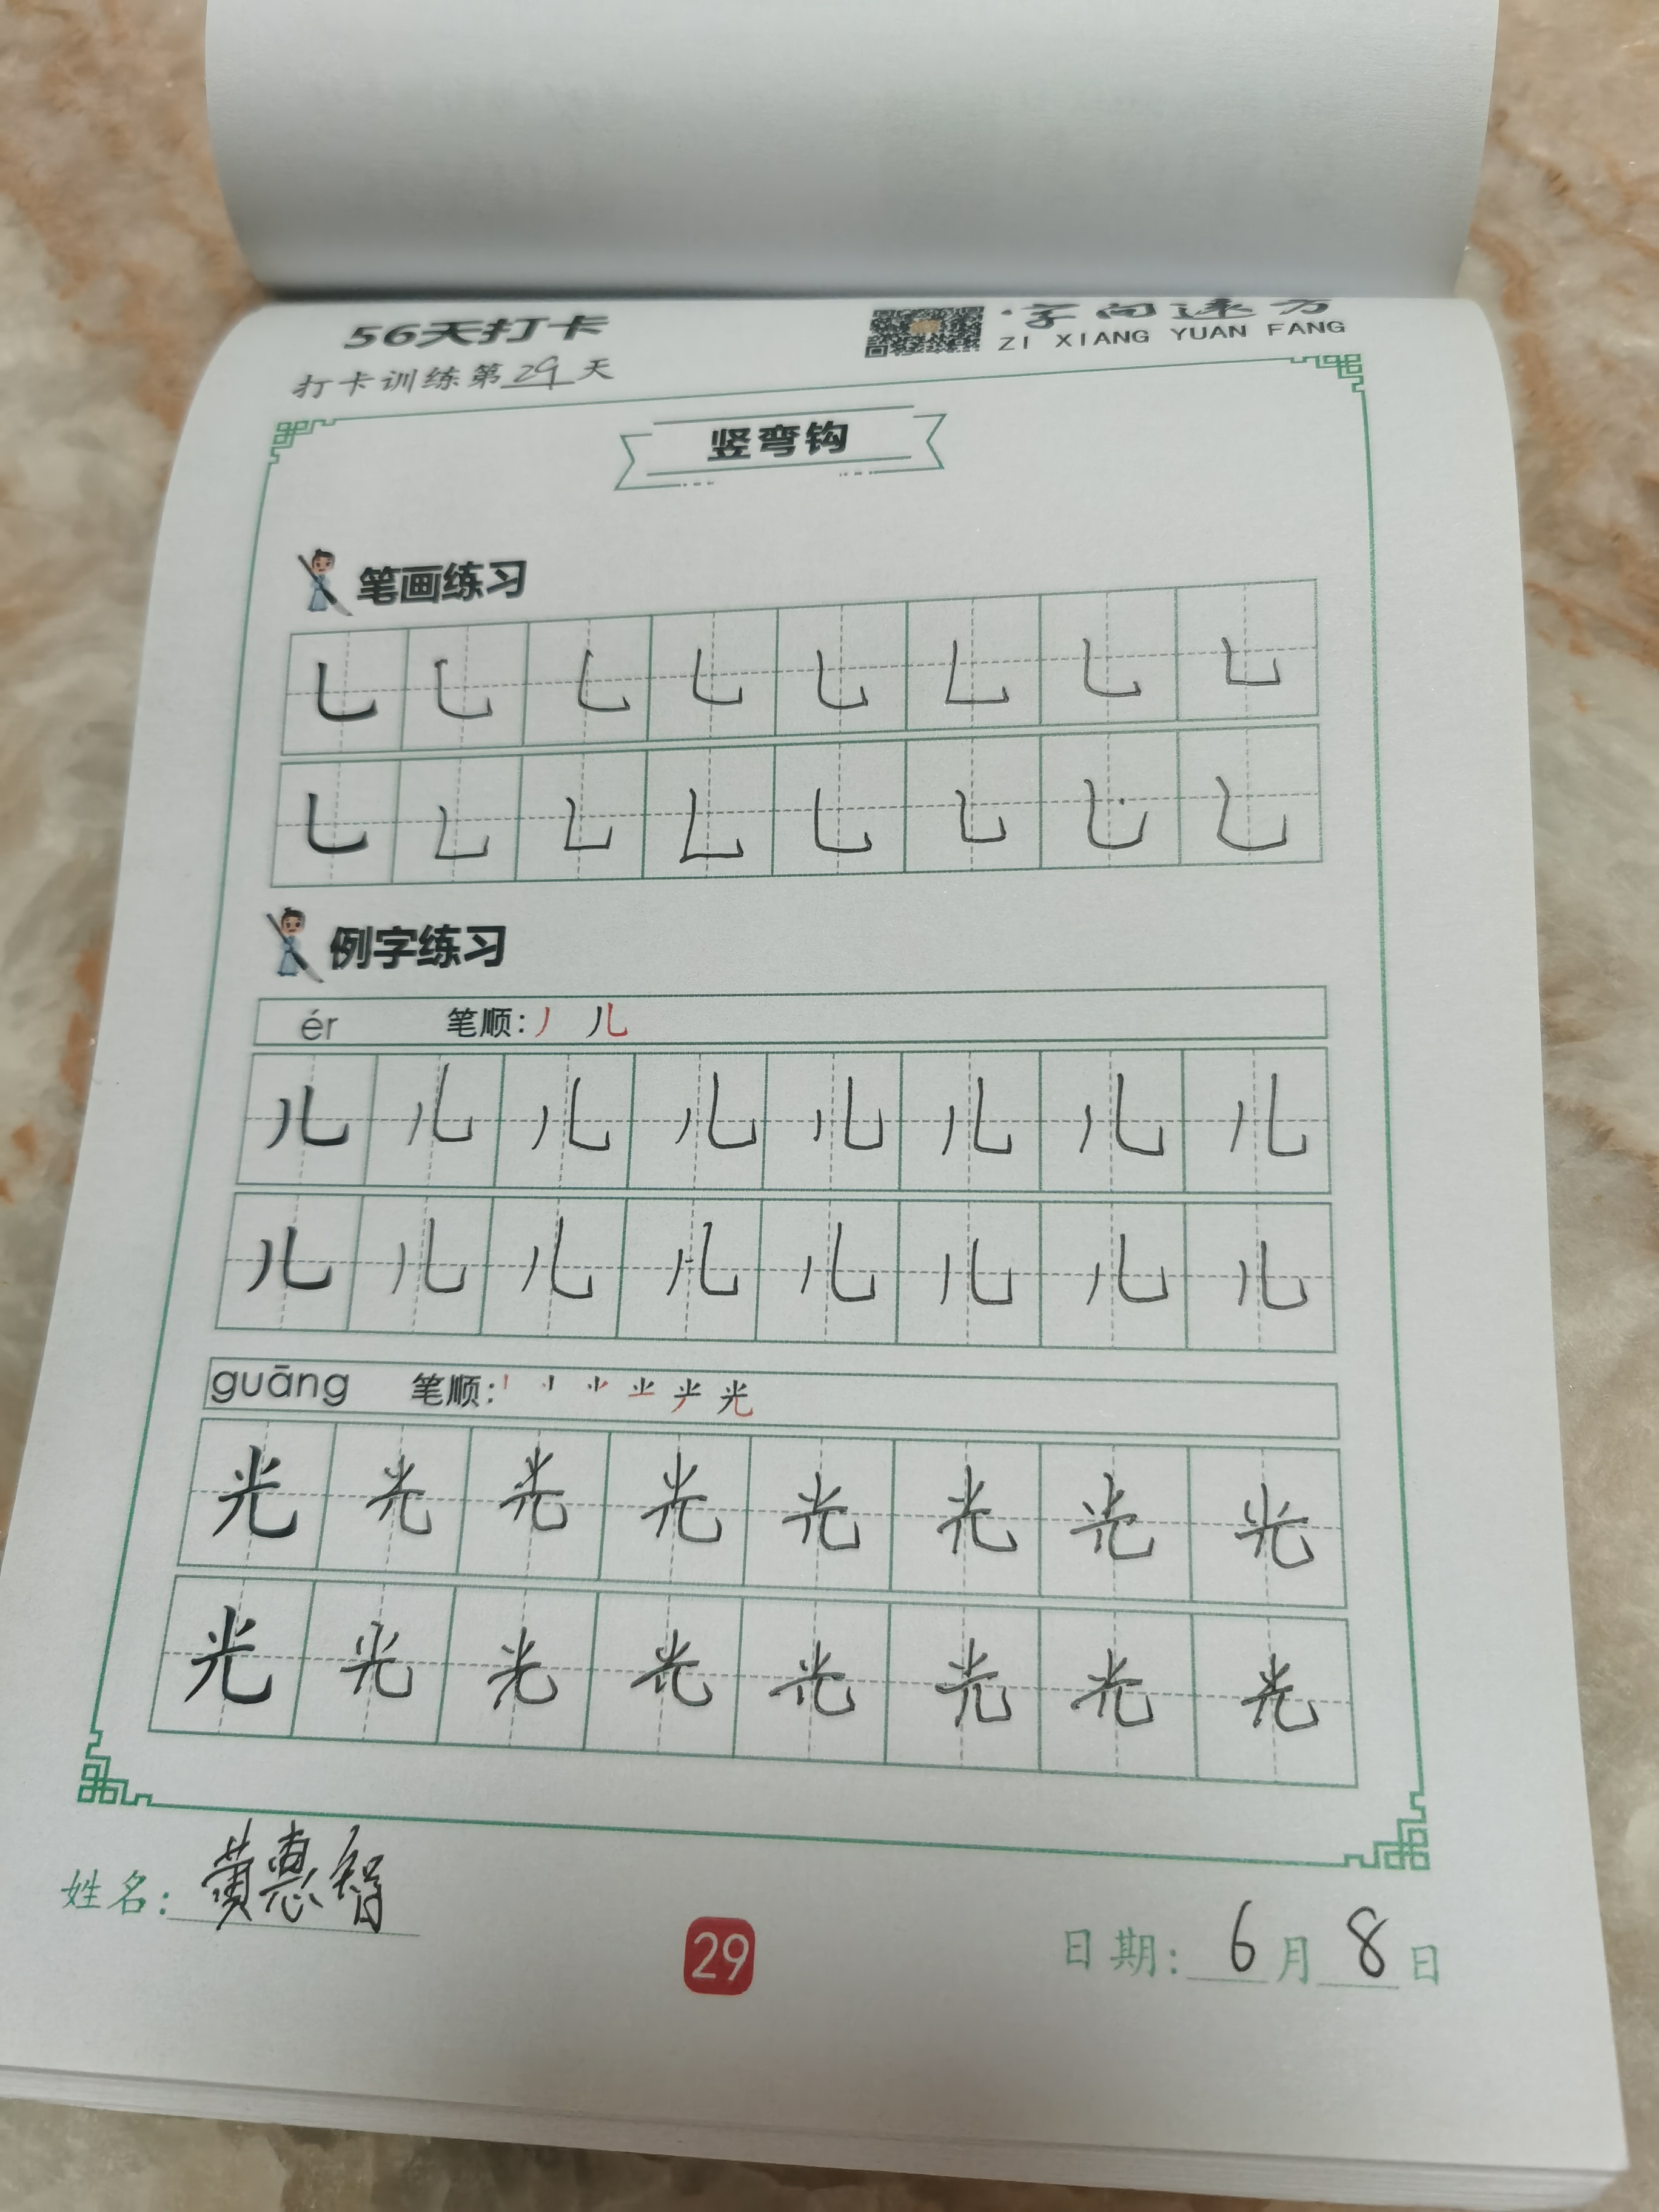 56天打卡
字向远方
ZI XIANG YUAN FANG
打卡训练第29天
竖弯钩
笔画练习
乚 乚 乚 乚 乚 乚 乚 乚
乚 乚 乚 乚 乚 乚 乚 乚
例字练习
ér 笔顺: 丿 儿
儿 儿 儿 儿 儿 儿 儿 儿
儿 儿 儿 儿 儿 儿 儿 儿
guāng 笔顺: 光
光 光 光 光 光 光 光 光
光 光 光 光 光 光 光 光
姓名: 黄惠智
29
日期: 6月8日